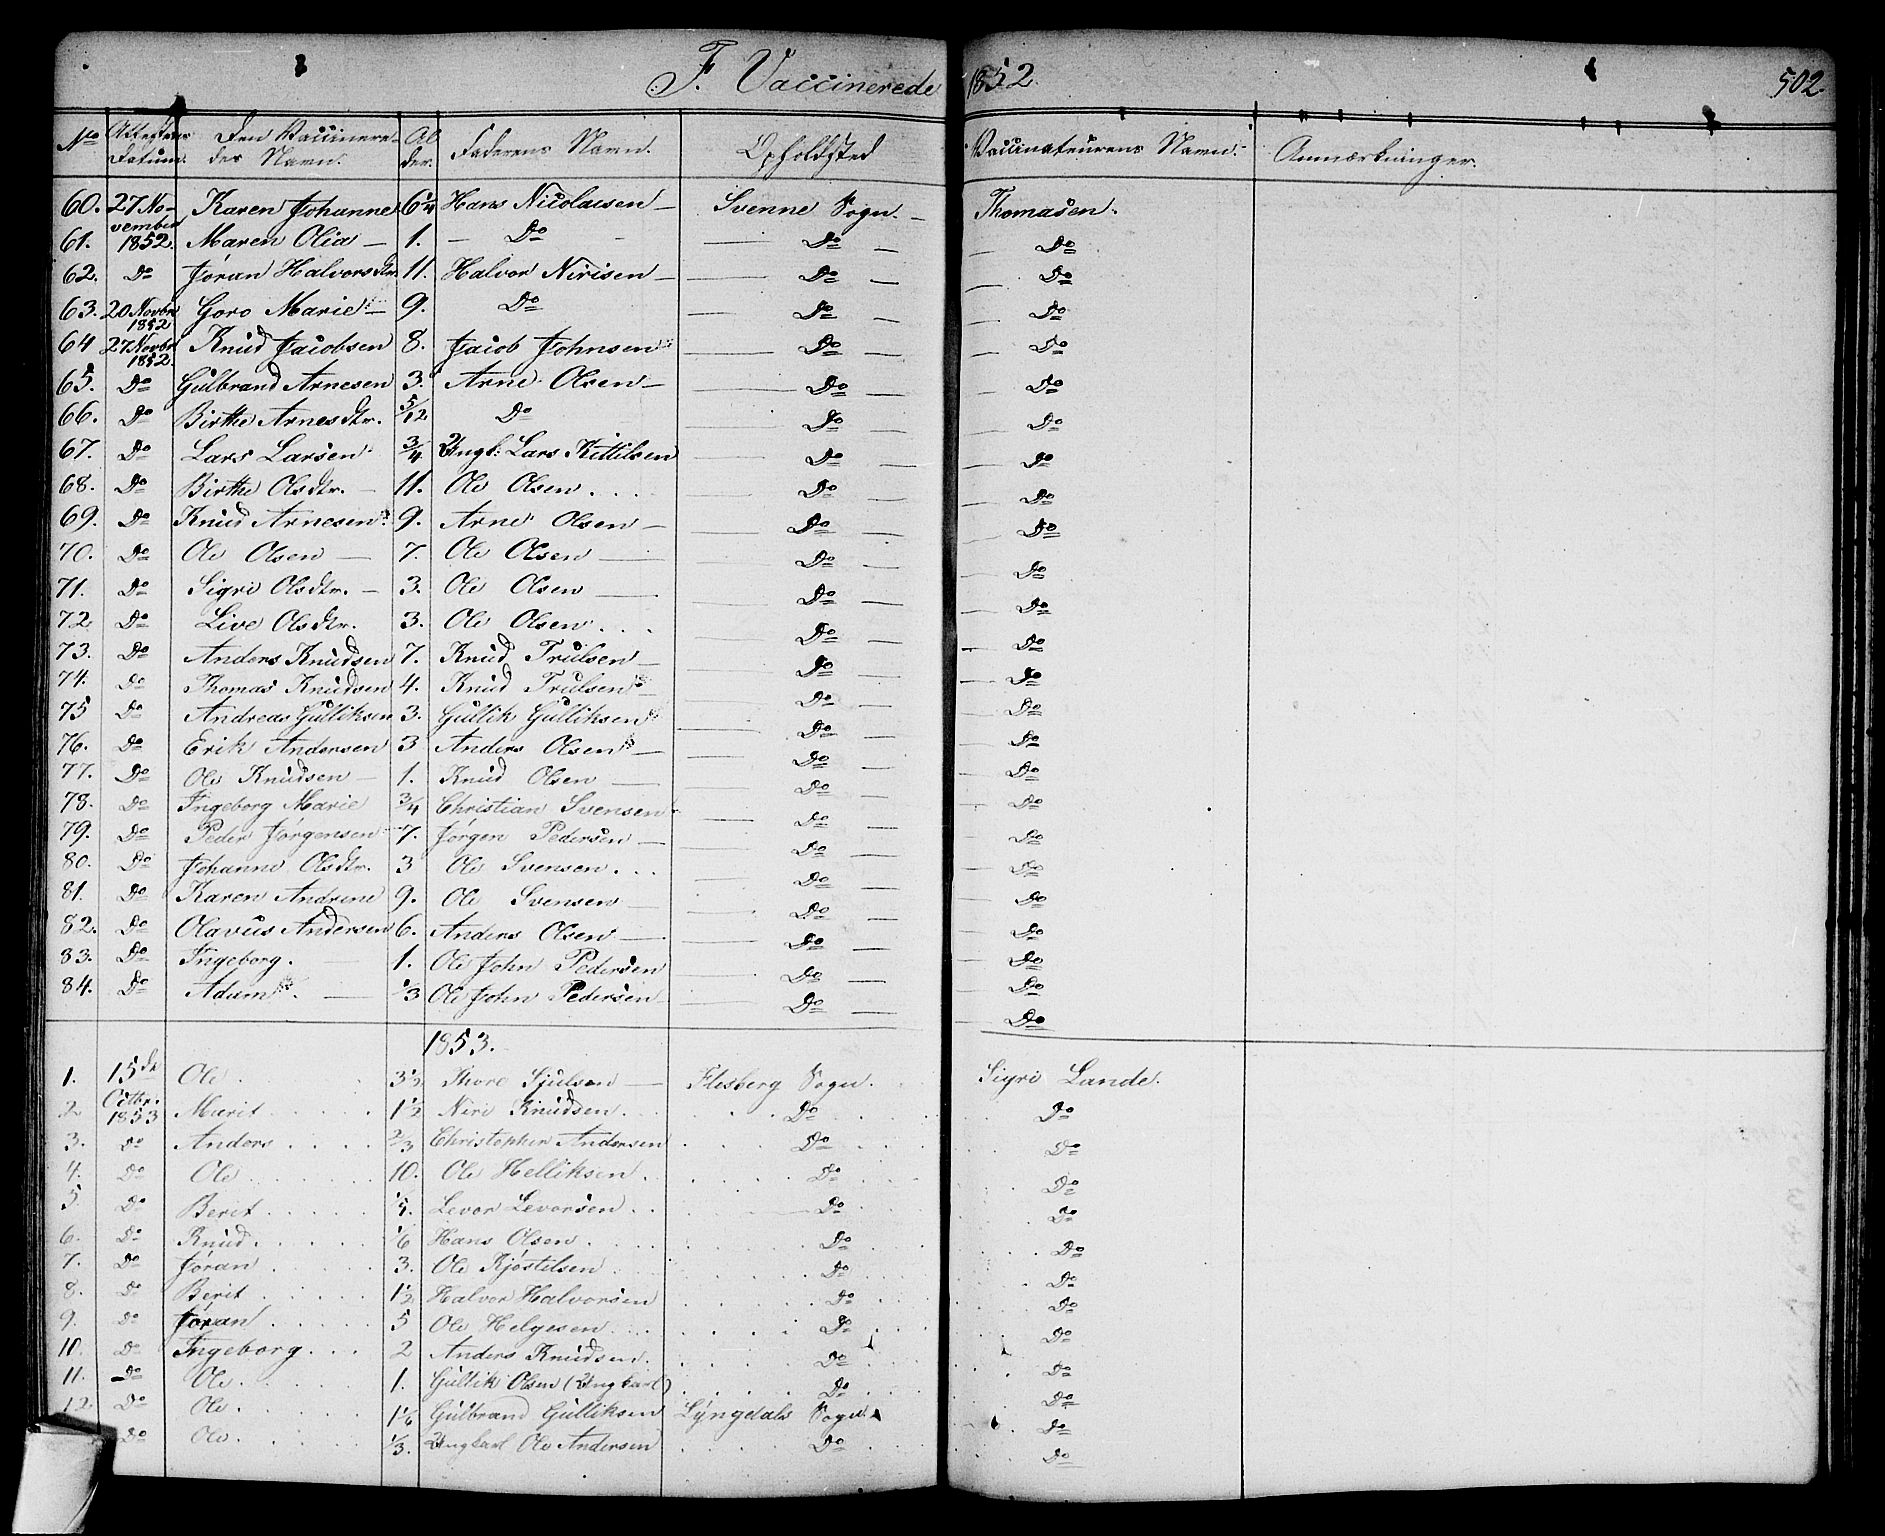 F. Vaccinerede 1852. 502.
No Attestens Datum. Den Vaccineredes Navn. Alder. Faderens Navn. Opholdsted Vaccinateurens Navn. Anmærkninger.
60. 27 November 1852. Karen Johanne 6 1/4 Hans Nicolaisen Svenne Sogn. Thomasen.
61. Maren Olia 1. Do Do Do
62. Do Jøran Halvorsdtr. 11. Halvor Nirisen Do Do
63. 20 Novbr 1852 Goro Marie 9. Do Do Do
64 27 Novbr 1852. Knud Jacobsen 8. Jacob Johnsen Do Do
65. Do Gulbrand Arnesen 3. Arne Olsen Do Do
66. Do Birthe Arnesdtr. 5/12 Do Do Do
67. Do Lars Larsen 3/4 Ungk: Lars Kittilsen Do Do
68. Do Birthe Olsdtr. 11. Ole Olsen Do Do
69. Do Knud Arnesen 9. Arne Olsen Do Do
70. Do Ole Olsen 7. Ole Olsen Do Do
71. Do Sigri Olsdtr. 3. Ole Olsen Do Do
72. Do Live Olsdtr. 3. Ole Olsen Do Do
73. Do Anders Knudsen 7. Knud Trulsen Do Do
74. Do Thomas Knudsen 4. Knud Trulsen Do Do
75 Do Andreas Gulliksen 3. Gullik Gulliksen Do Do
76. Do Erik Andersen 3 Anders Olsen Do Do
77. Do Ole Knudsen 1. Knud Olsen Do Do
78. Do Ingeborg Marie 3/4 Christian Svensen Do Do
79. Do Peder Jørgensen 7. Jørgen Pedersen Do Do
80. Do Johanne Olsdtr. 3 Ole Svensen Do Do
81. Do Karen Andrine 9. Ole Svensen Do Do
82. Do Olavus Andersen 6. Anders Olsen Do Do
83. Do Ingeborg. 1. Ole John Pedersen Do Do
84. Do Adam. 1/3 Ole John Pedersen Do Do
1853.
1. 15de Octbr. 1853 Ole 3 1/2 Thore Sjulsen Flesberg Sogn. Sigri Lande.
2 Marit 1 1/2 Niri Knudsen Do Do
3. Do Anders 2/3 Christopher Andersen Do Do
4. Do Ole 10. Ole Helliksen Do Do
5. Do Berit Levor Levorsen Do Do
6. Do Knud 1/6 Hans Olsen Do Do
7. Do Jøran 3. Ole Kjøstilsen Do Do
8. Do Berit 1 1/2 Halvor Halvorsen Do Do
9. Do Jøran 5 Ole Helgesen Do Do
10. Do Ingeborg 2 Anders Knudsen Do Do
11. Do Ole 1. Gullik Olsen (Ungkarl) Do Do
12. Do Ole 1 1/6 Gulbrand Gulliksen Lyngdals Sogn. Do
Do Ole 1/3. Ungkarl Ole Andersen Do Do